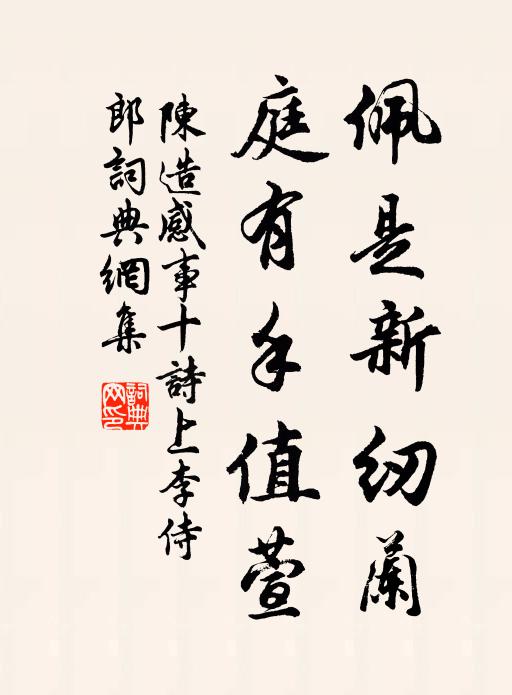 佩是新紉蘭
庭有手值萱
陳造感事十詩上李侍
郎詞典網集
詞典網印